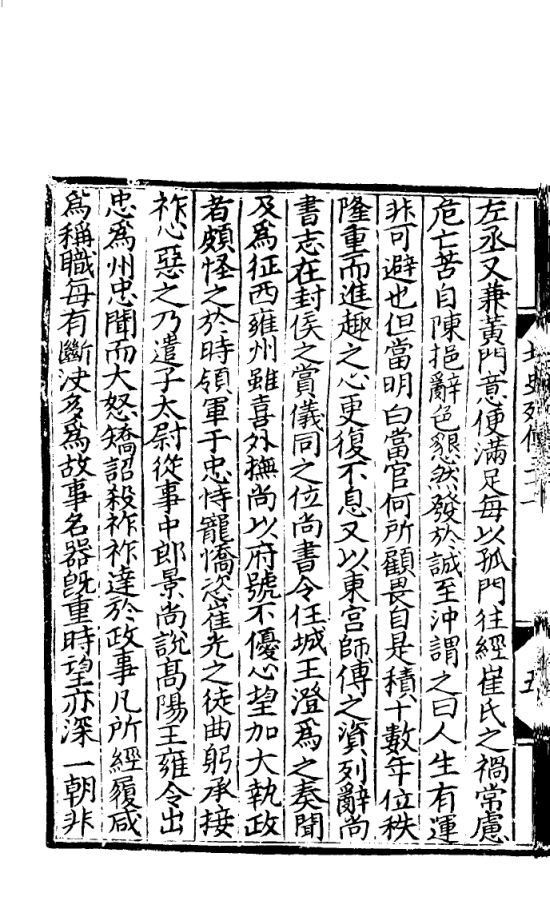 左丞又兼黄門意便滿足每以孤門往經崔氏之禍常慮
危亡苦自陳挹辭色懇然發於誠至沖謂之曰人生有運
非可避也但當明白當官何所顧畏自是積十數年位秩
隆重而進趣之心更復不息又以東宫師傅之資列辭尚
書志在封侯之賞儀同之位尚書令任城王澄爲之奏聞
及爲征西雍州雖喜外撫尚以府號不優心望加大執政
者頗怪之於時領軍于忠恃寵憍恣崔光之徒曲躬承接
祚心惡之乃遣子太尉從事中郎景尚說髙陽王雍令出
忠爲州忠聞而大怒矯詔殺祚祚達於政事凡所經履咸
爲稱職每有斷決多爲故事名器旣重時望亦深一朝非
北史列傳三十一
五